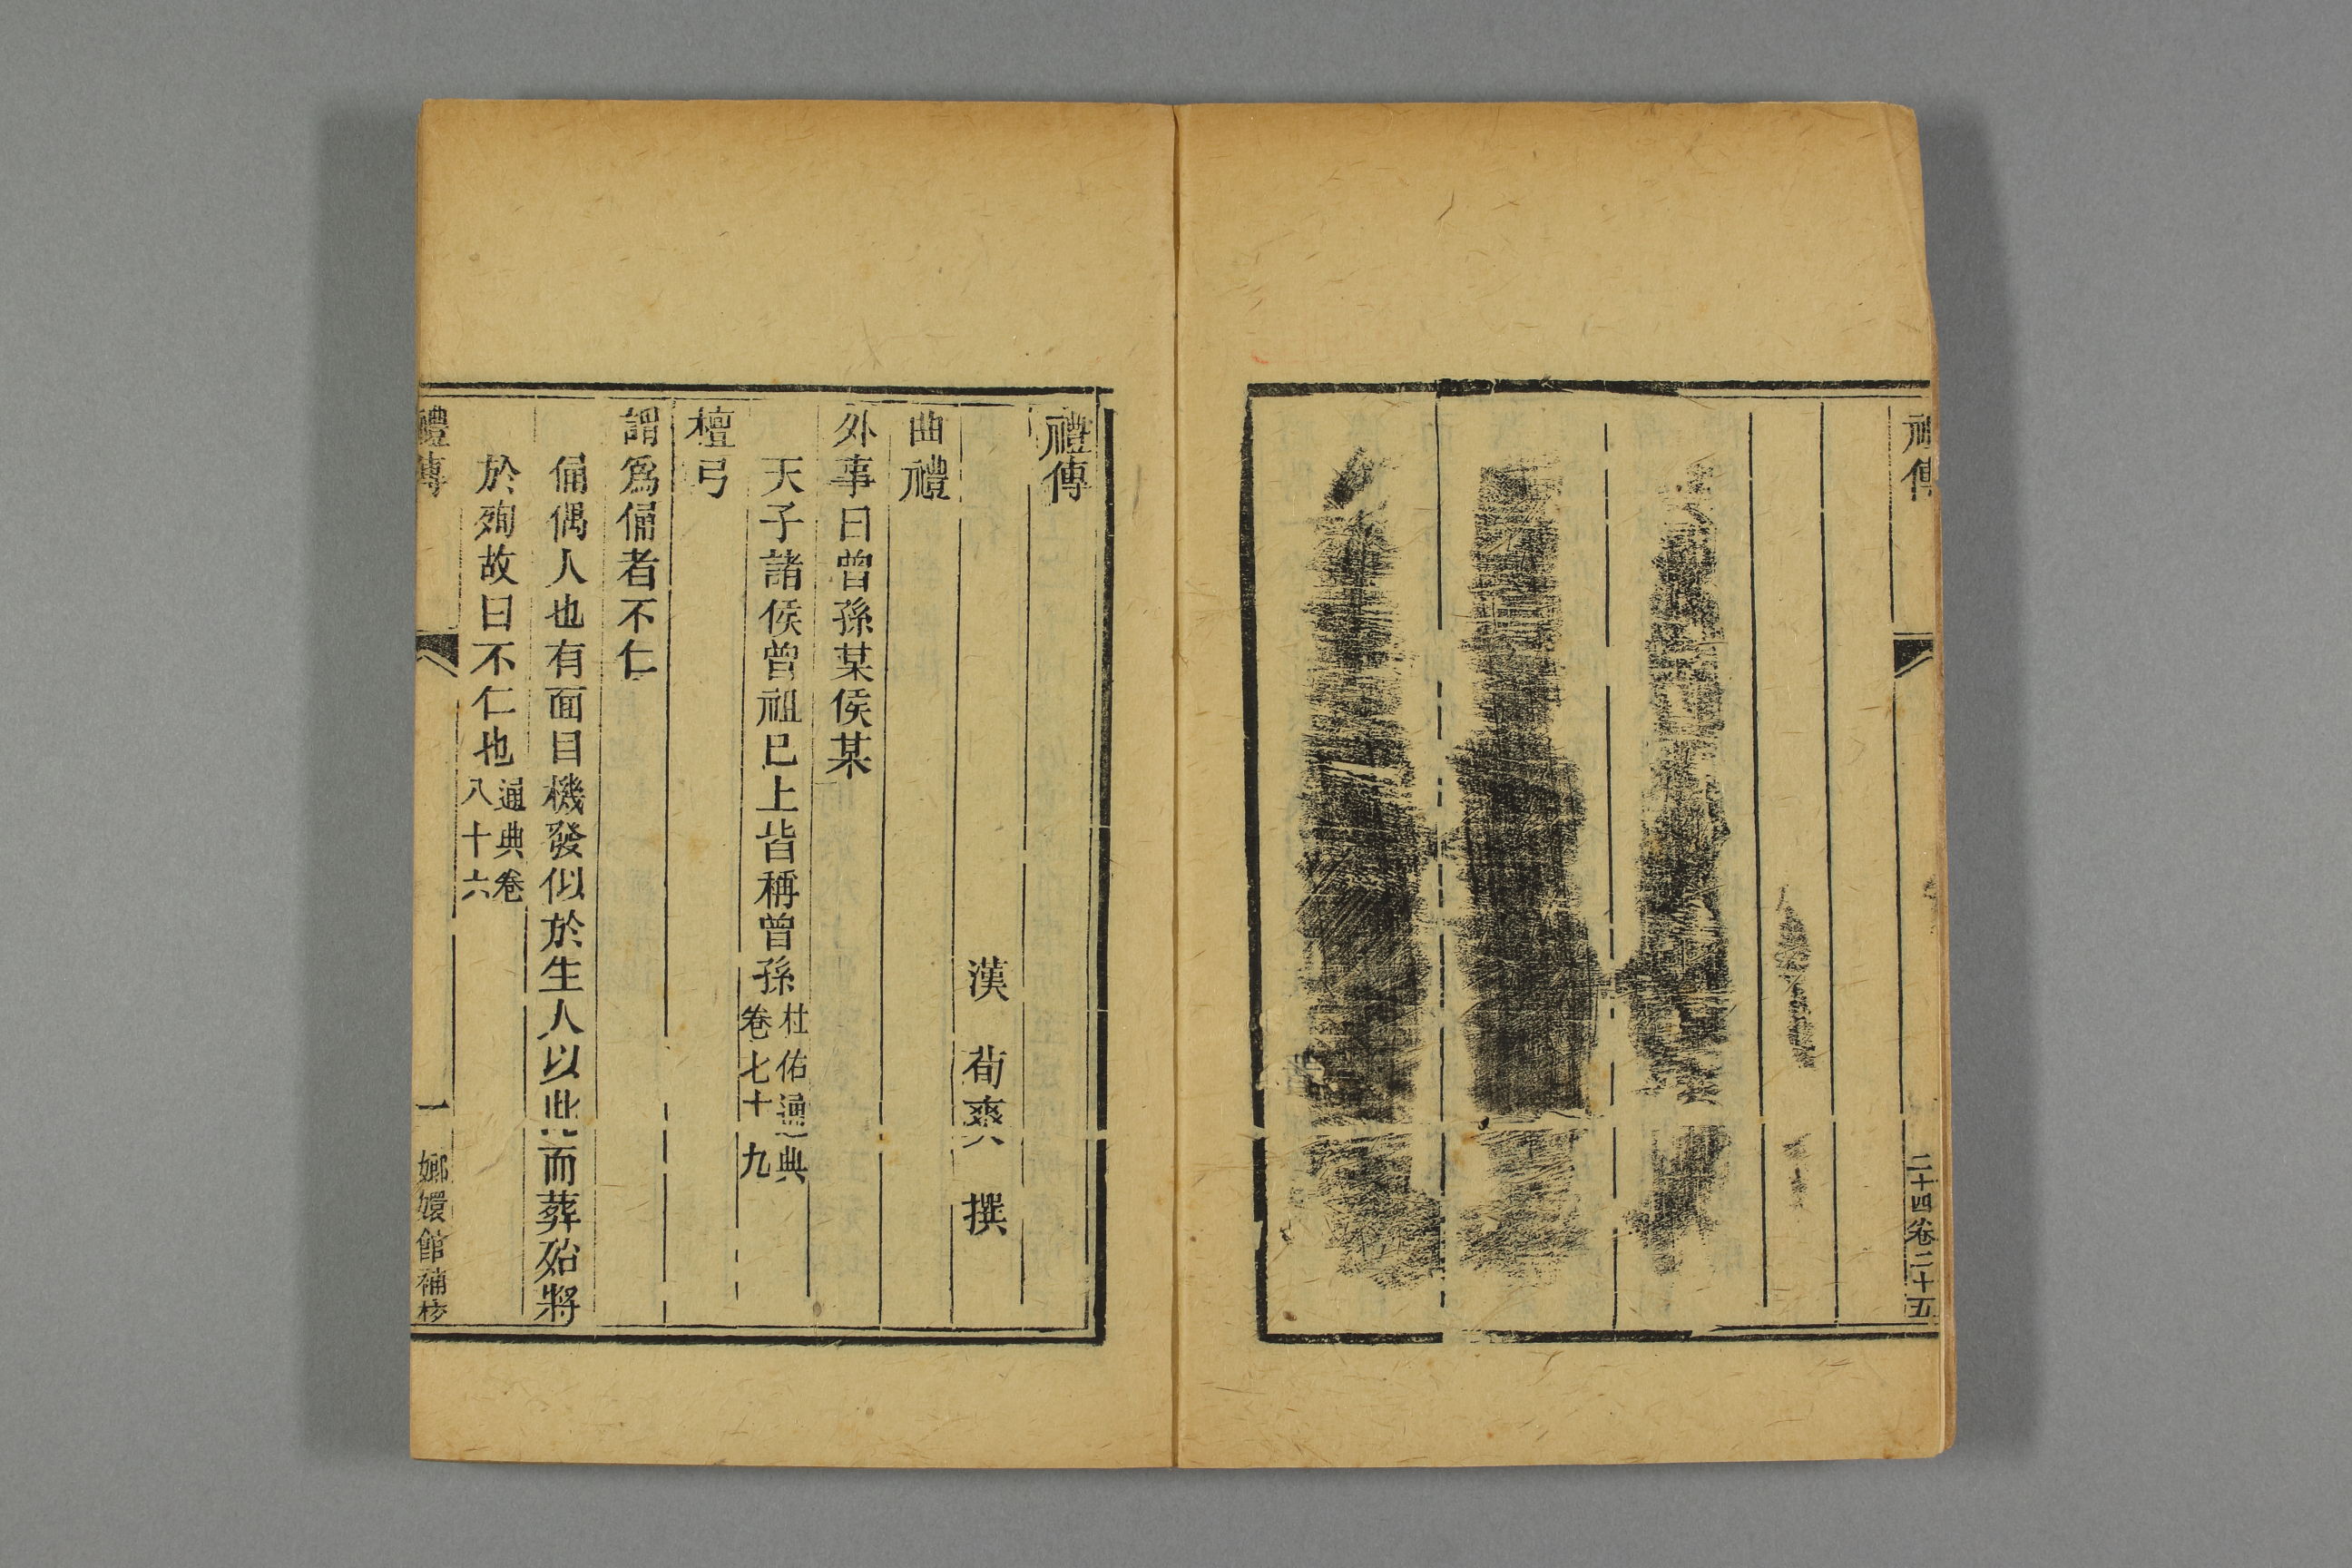 禮傳
二十四卷二十五
禮傳
漢 荀爽 撰
曲禮
外事曰曾孫某侯某
天子諸侯曾祖已上皆稱曾孫杜佑通典卷七十九
檀弓
謂爲俑者不仁
俑偶人也有面目機發似於生人以此而葬殆將
於殉故曰不仁也通典卷八十六
禮傳
一
嫏嬛館補校